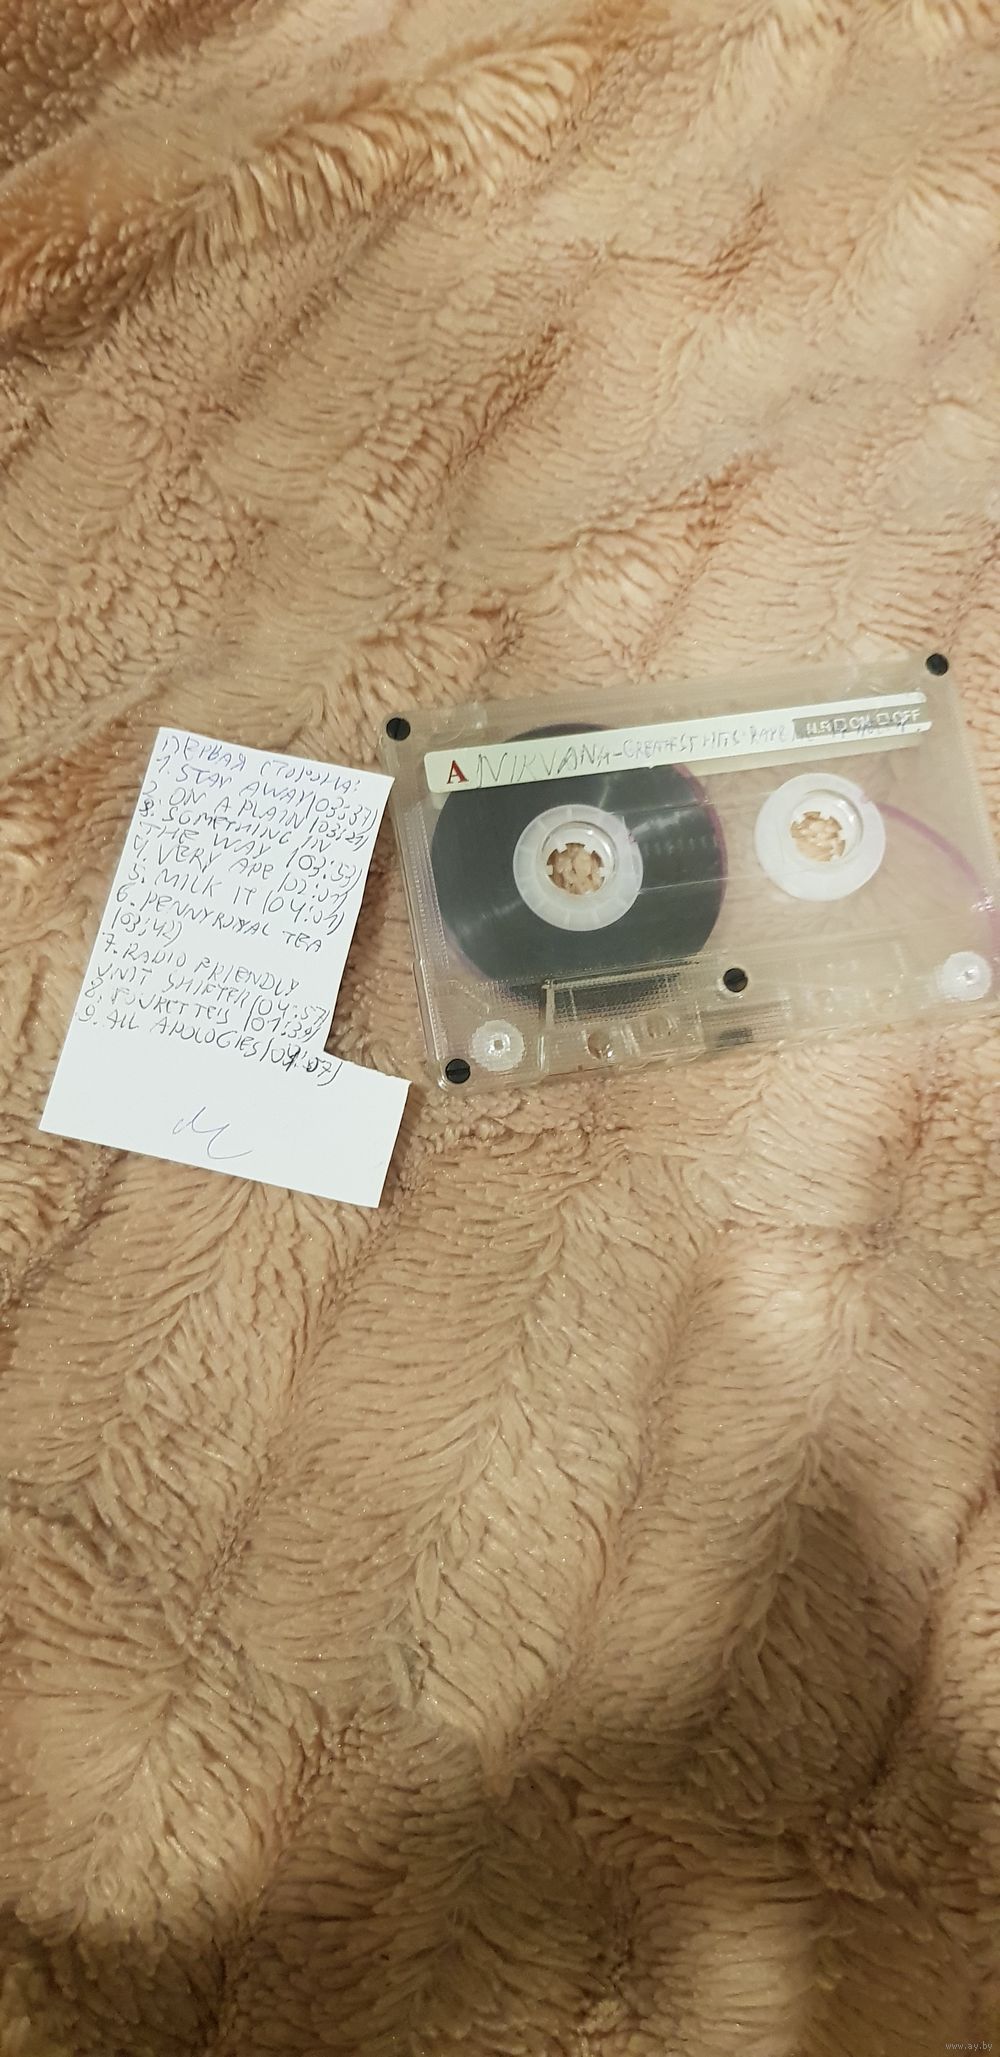 ПЕРВАЯ СТОРОНА:
1. STAY AWAY (03:37)
2. ON A PLAIN (03:21)
3. SOMETHING IN
THE WAY (03:53)
4. VERY APE (02:01)
5. MILK IT (04:01)
6. PENNYROYAL TEA
(03:42)
7. RADIO FRIENDLY
UNIT SHIFTER (04:57)
8. TOURETTEIS (01:39)
9. ALL APOLOGIES (04:07)
A NIRVANA-GREATEST HITS-RARE
N.R □ ON □ OFF
www.ay.by